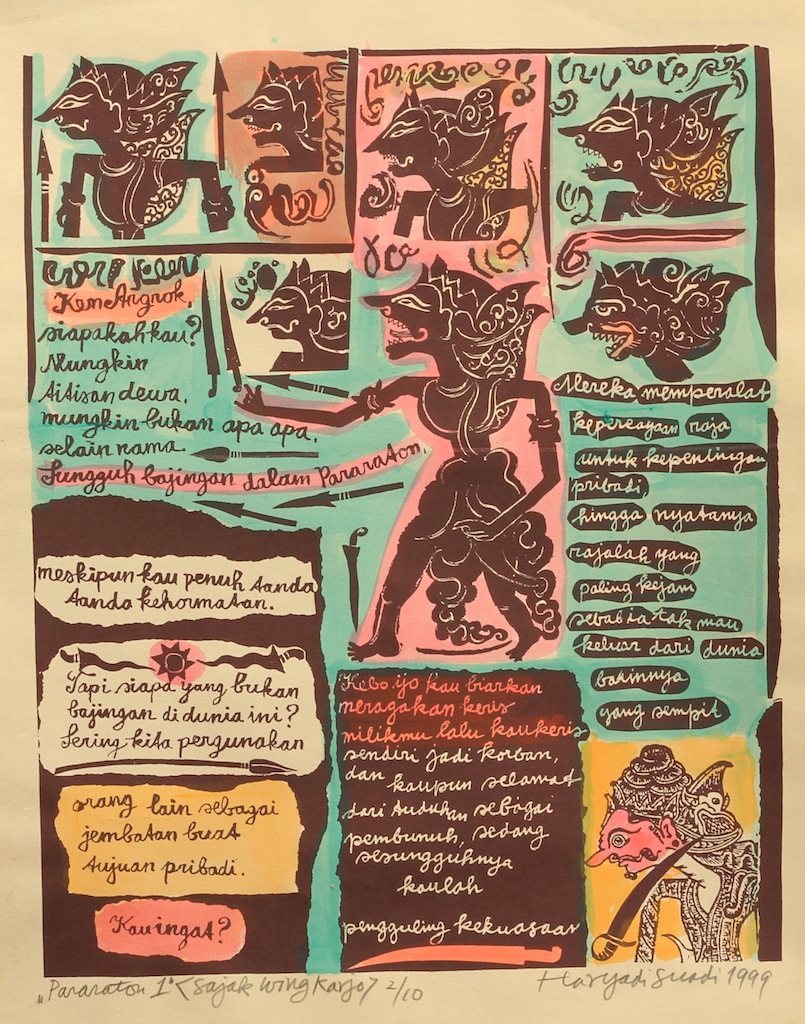 Ken Angrok,
siapakah kau?
Mungkin
titisan dewa,
mungkin bukan apa apa,
selain nama.
Sungguh bajingan dalam Pararaton,
meskipun kau penuh tanda
tanda kehormatan.
Tapi siapa yang bukan
bajingan di dunia ini?
Sering kita pergunakan
orang lain sebagai
jembatan buat
tujuan pribadi.
Kau ingat?
Kebo ijo kau biarkan
meragakan keris
milikmu lalu kau keris
sendiri jadi korban,
dan kaupun selamat
dari tuduhan sebagai
pembunuh, sedang
sesungguhnya
kaulah
pengguling kekuasaan
Mereka memperalat
kepercayaan raja
untuk kepentingan
pribadi,
hingga nyatanya
rajalah yang
paling kejam
sebab ia tak mau
keluar dari dunia
batinnya
yang sempit
"Pararaton 1" <Sajak Wing Karjo> 2/10
Haryadi Suadi 1999